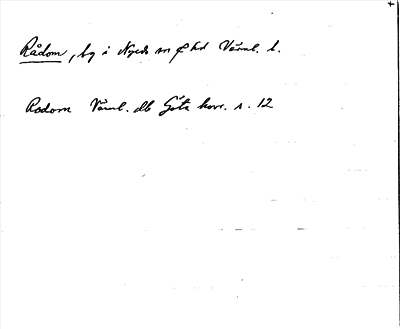 Rådom, by i Nyeds sn o hd Värml. l.
Radom Värml. db Göta hovr. s. 12